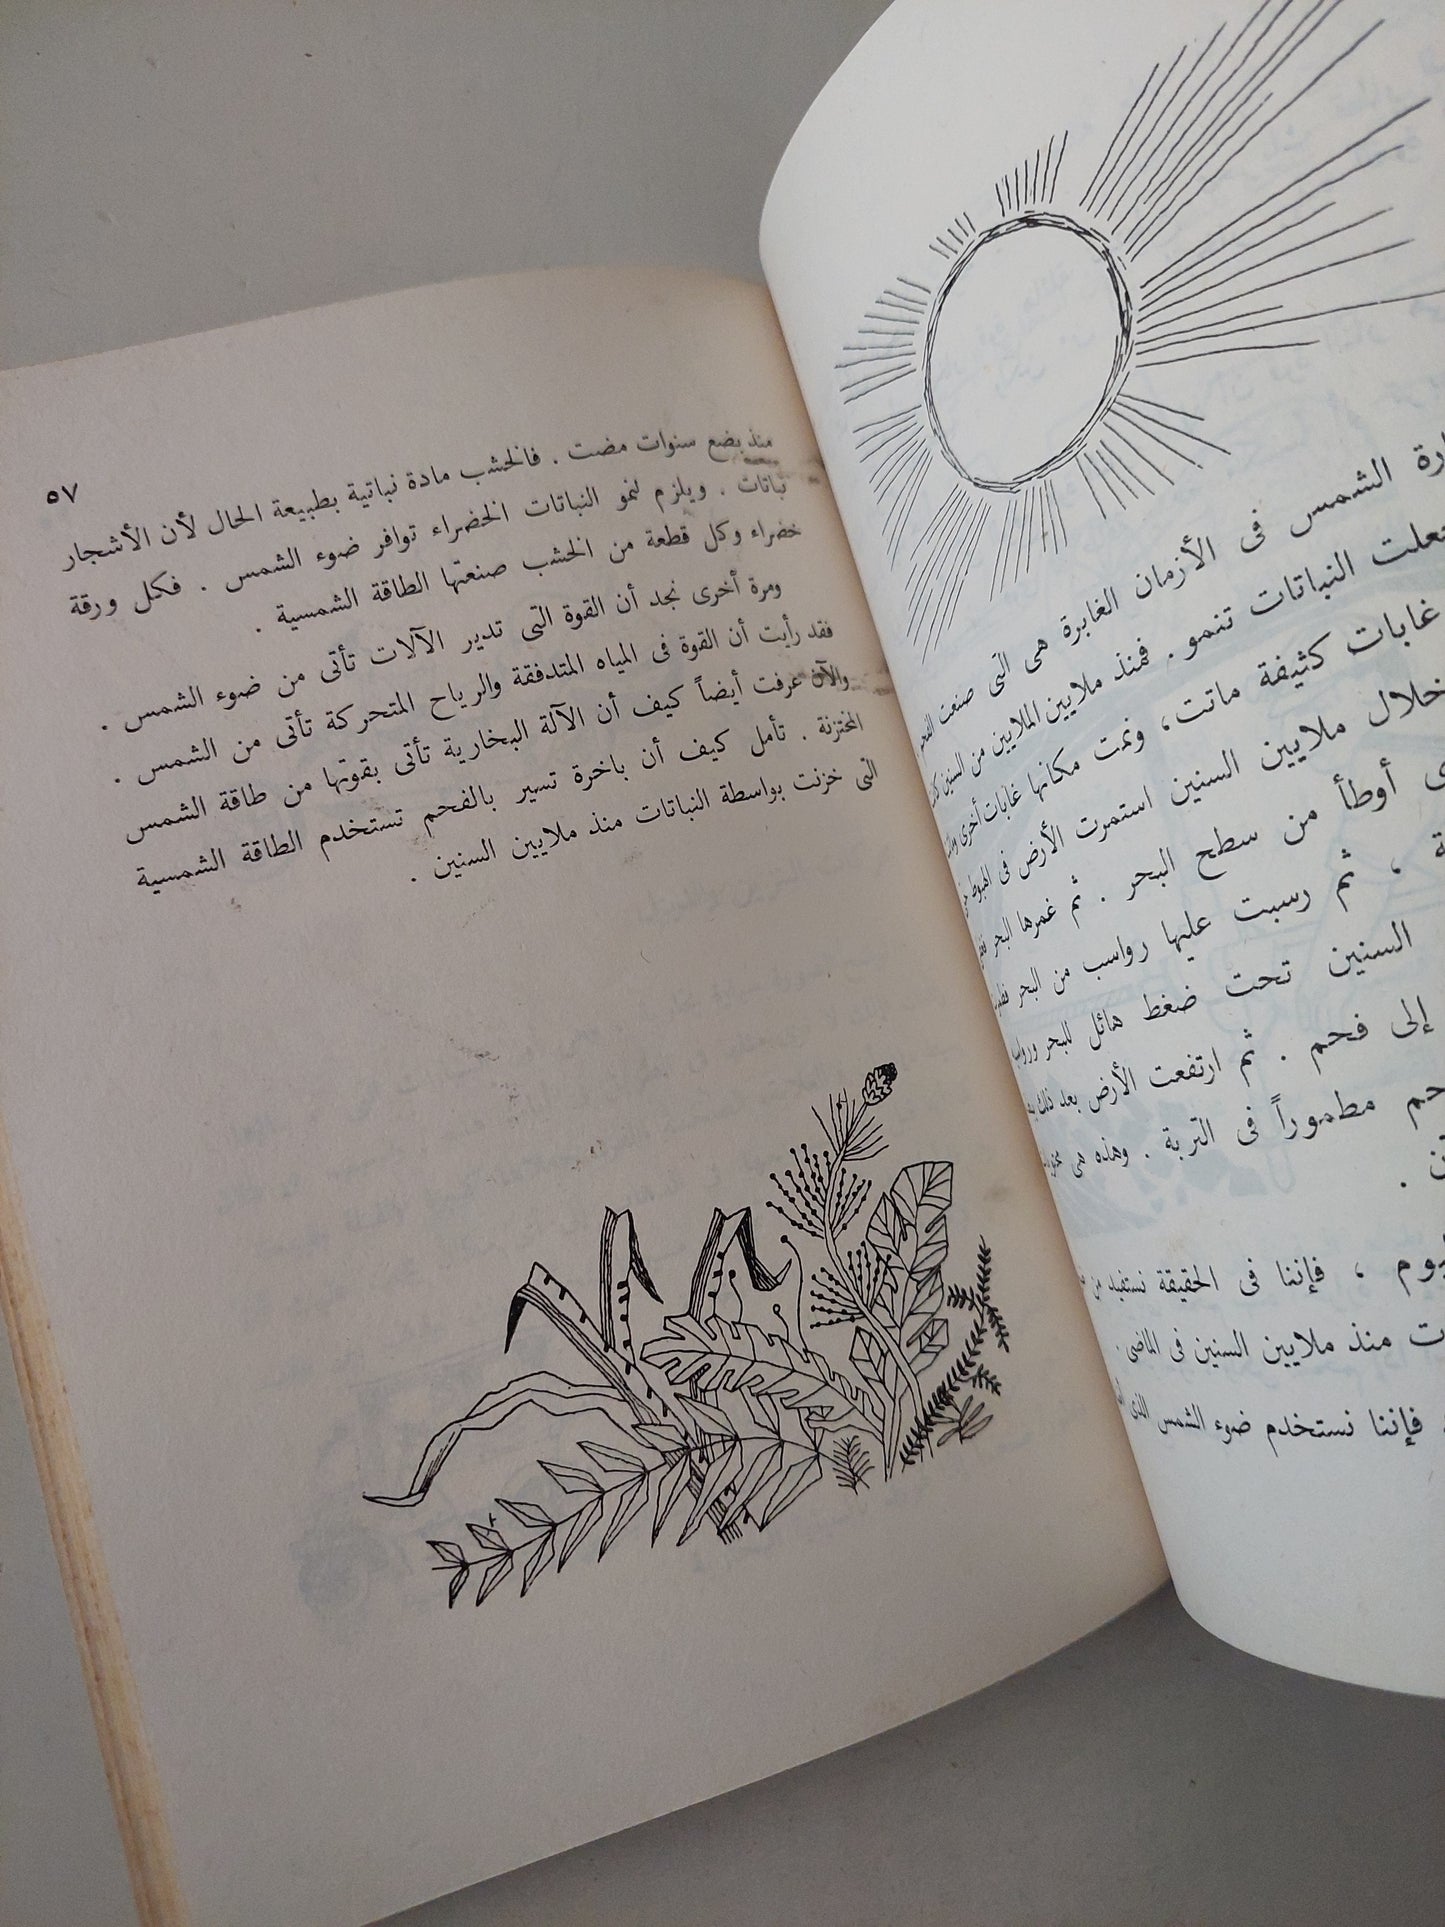 الشمس فى الأزمان الغابرة هى التى صنعت
النباتات تنمو . فمنذ ملايين الملايين من السنين
غابات كثيفة ماتت ، ونمت مكانها غابات أخرى
خلال ملايين السنين استمرت الأرض فى الهبوط
أوطأ من سطح البحر . ثم غمرها البحر
، ثم رسبت عليها رواسب من البحر
السنين تحت ضغط هائل للبحر
إلى فحم . ثم ارتفعت الأرض بعد ذلك
مطموراً فى التربة . وهذه هى
، فإننا فى الحقيقة نستفيد من
منذ ملايين السنين فى الماضى .
فإننا نستخدم ضوء الشمس الذى
٥٧
منذ بضع سنوات مضت . فالخشب مادة نباتية بطبيعة الحال لأن الأشجار
نباتات . ويلزم لنمو النباتات الخضراء توافر ضوء الشمس . فكل ورقة
خضراء وكل قطعة من الخشب صنعتها الطاقة الشمسية .
ومرة أخرى نجد أن القوة التى تدير الآلات تأتى من ضوء الشمس .
فقد رأيت أن القوة فى المياه المتدفقة والرياح المتحركة تأتى من الشمس .
والآن عرفت أيضاً كيف أن الآلة البخارية تأتى بقوتها من طاقة الشمس
المختزنة . تأمل كيف أن باخرة تسير بالفحم تستخدم الطاقة الشمسية
التى خزنت بواسطة النباتات منذ ملايين السنين .